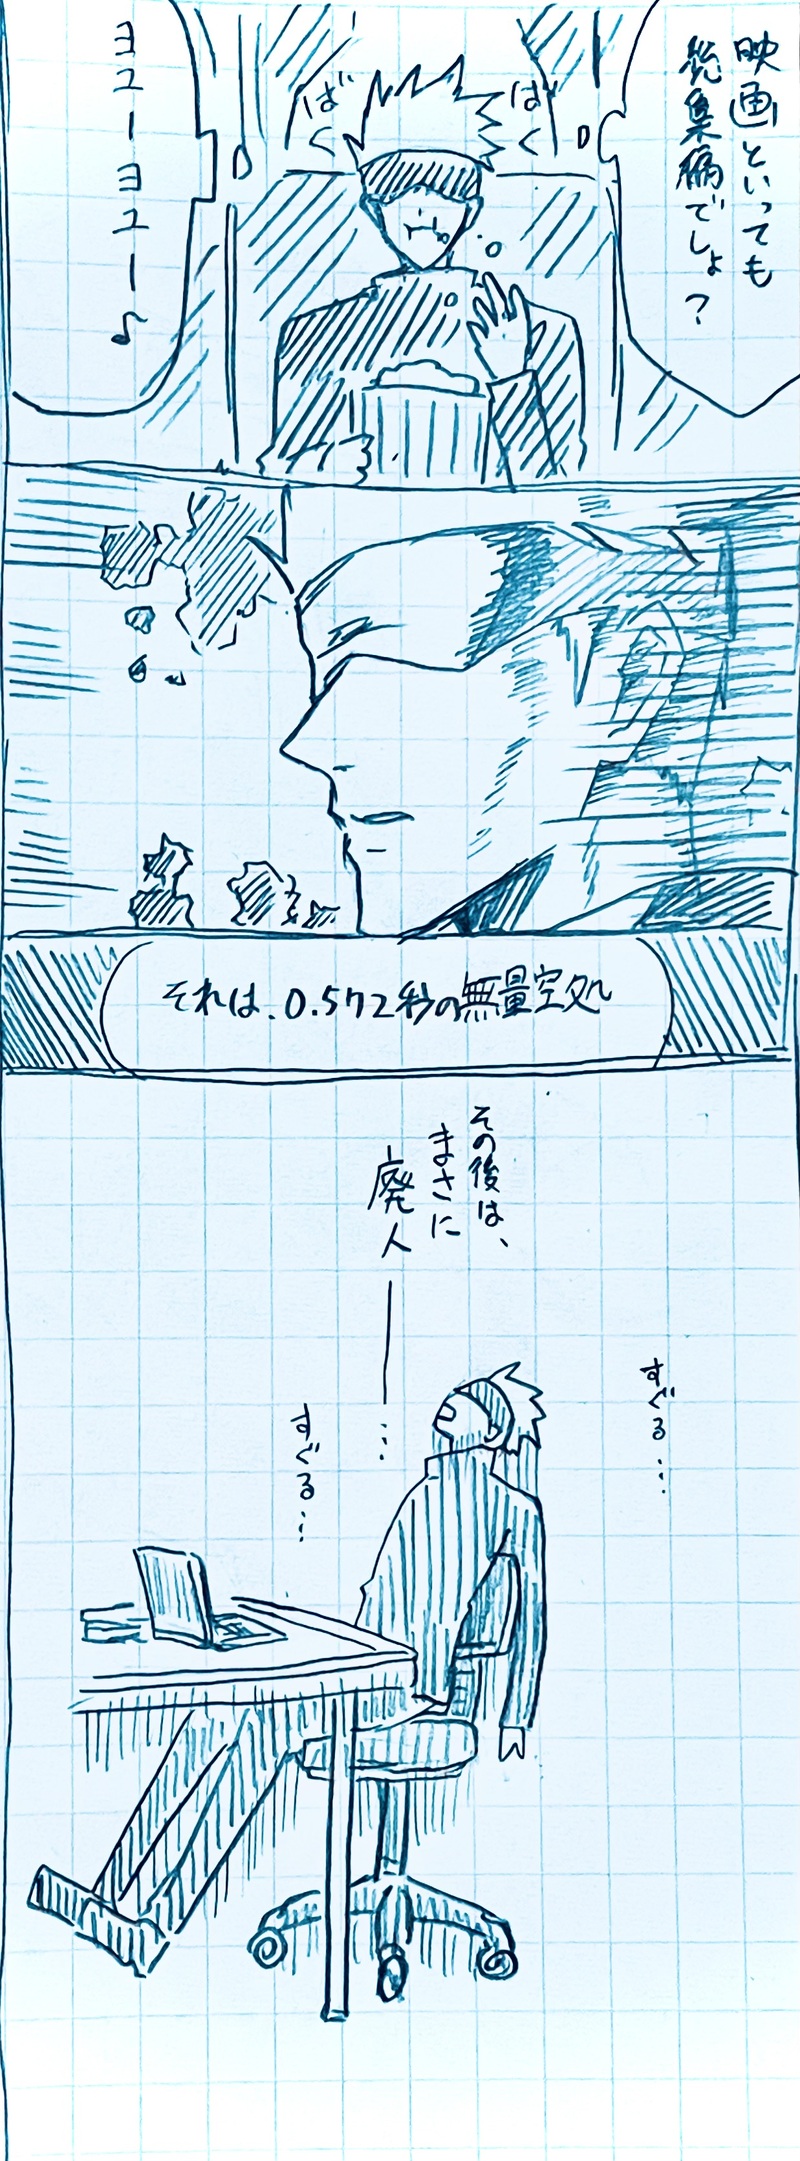 映画といっても
総集編でしょ？
ばく
ばく
ヨユーヨユー♪
それは、0.572秒の無量空処
その後は、
まさに
廃人
――…
すぐる…
すぐる…